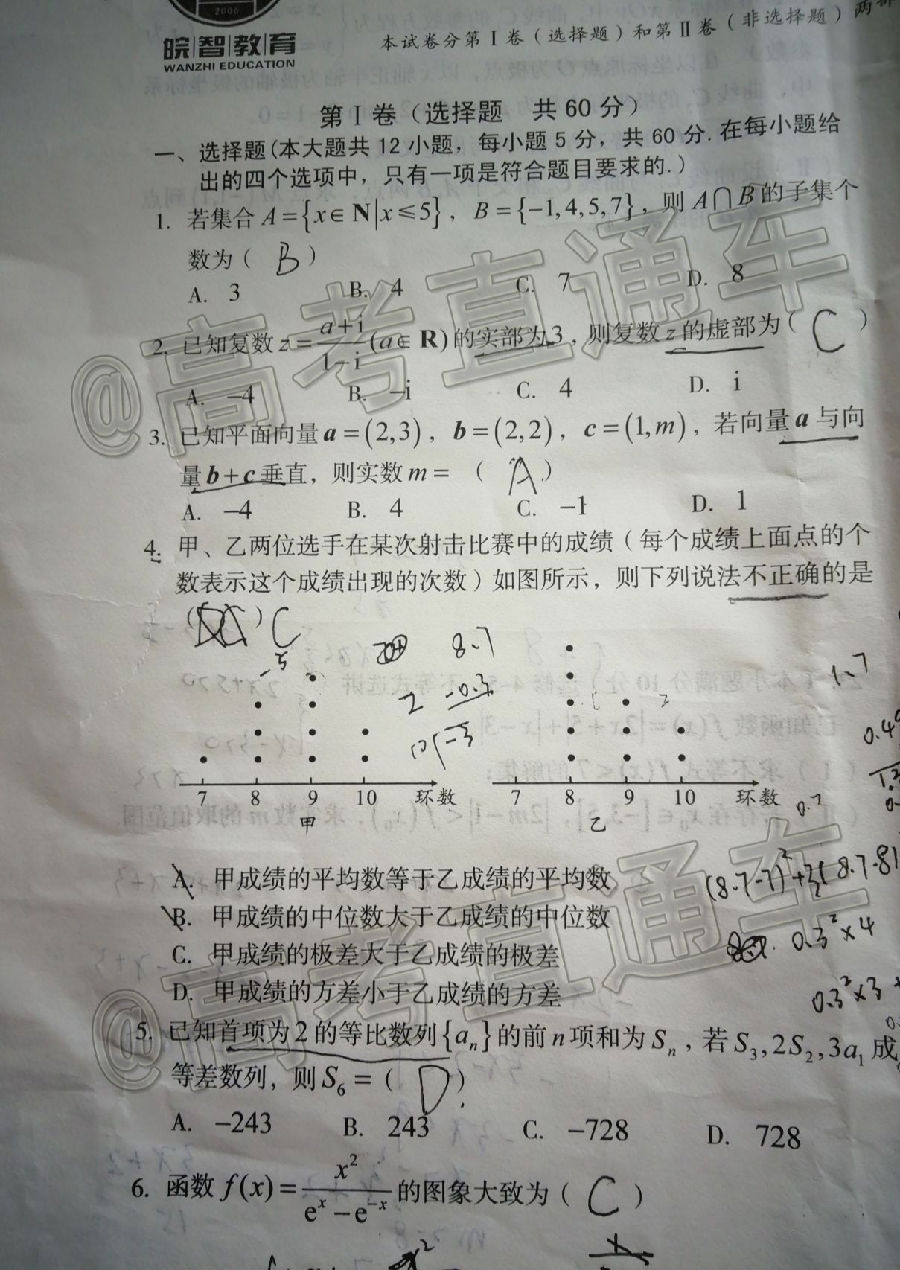 2006
皖智教育
WANZHI EDUCATION
本试卷分第Ⅰ卷(选择题)和第Ⅱ卷(非选择题)两部
第Ⅰ卷(选择题 共60分)
一、选择题(本大题共12小题,每小题5分,共60分.在每小题给
出的四个选项中,只有一项是符合题目要求的.)
1. 若集合A={x∈N|x≤5},B={-1,4,5,7},则A∩B的子集个
数为( B )
A. 3 B. 4 C. 7 D. 8
2. 已知复数z=(a+i)/(1-i)(a∈R)的实部为3,则复数z的虚部为( C )
A. -4 B. -i C. 4 D. i
3. 已知平面向量a=(2,3),b=(2,2),c=(1,m),若向量a与向
量b+c垂直,则实数m=( A )
A. -4 B. 4 C. -1 D. 1
4. 甲、乙两位选手在某次射击比赛中的成绩(每个成绩上面点的个
数表示这个成绩出现的次数)如图所示,则下列说法不正确的是
( ) C
8.7
-0.3
1.7
7 8 9 10 环数
甲
7 8 9 10 环数
乙
0.7
A. 甲成绩的平均数等于乙成绩的平均数
(8.7-7)²+3(8.7-8)
B. 甲成绩的中位数大于乙成绩的中位数
0.3²×4
C. 甲成绩的极差大于乙成绩的极差
D. 甲成绩的方差小于乙成绩的方差
0.3²×3
5. 已知首项为2的等比数列{aₙ}的前n项和为Sₙ,若S₃,2S₂,3a₁成
等差数列,则S₆=( D )
A. -243 B. 243 C. -728 D. 728
6. 函数f(x)=x²/(eˣ-e⁻ˣ)的图象大致为( C )
@高考直通车
@高考直通车